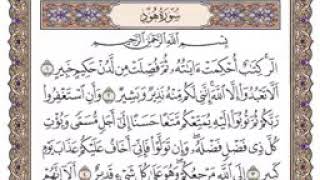 سُورَةُ هُودٍ
بِسْمِ ٱللَّهِ ٱلرَّحْمَٰنِ ٱلرَّحِيمِ
الٓر كِتَٰبٌ أُحْكِمَتْ ءَايَٰتُهُۥ ثُمَّ فُصِّلَتْ مِن لَّدُنْ حَكِيمٍ خَبِيرٍ ١
أَلَّا تَعْبُدُوٓا۟ إِلَّا ٱللَّهَ إِنَّنِى لَكُم مِّنْهُ نَذِيرٌ وَبَشِيرٌ ٢ وَأَنِ ٱسْتَغْفِرُوا۟
رَبَّكُمْ ثُمَّ تُوبُوٓا۟ إِلَيْهِ يُمَتِّعْكُم مَّتَٰعًا حَسَنًا إِلَىٰٓ أَجَلٍ مُّسَمًّى وَيُؤْتِ
كُلَّ ذِى فَضْلٍ فَضْلَهُۥ وَإِن تَوَلَّوْا۟ فَإِنِّىٓ أَخَافُ عَلَيْكُمْ عَذَابَ يَوْمٍ
كَبِيرٍ ٣ إِلَى ٱللَّهِ مَرْجِعُكُمْ وَهُوَ عَلَىٰ كُلِّ شَىْءٍ قَدِيرٌ ٤ أَلَآ إِنَّهُمْ